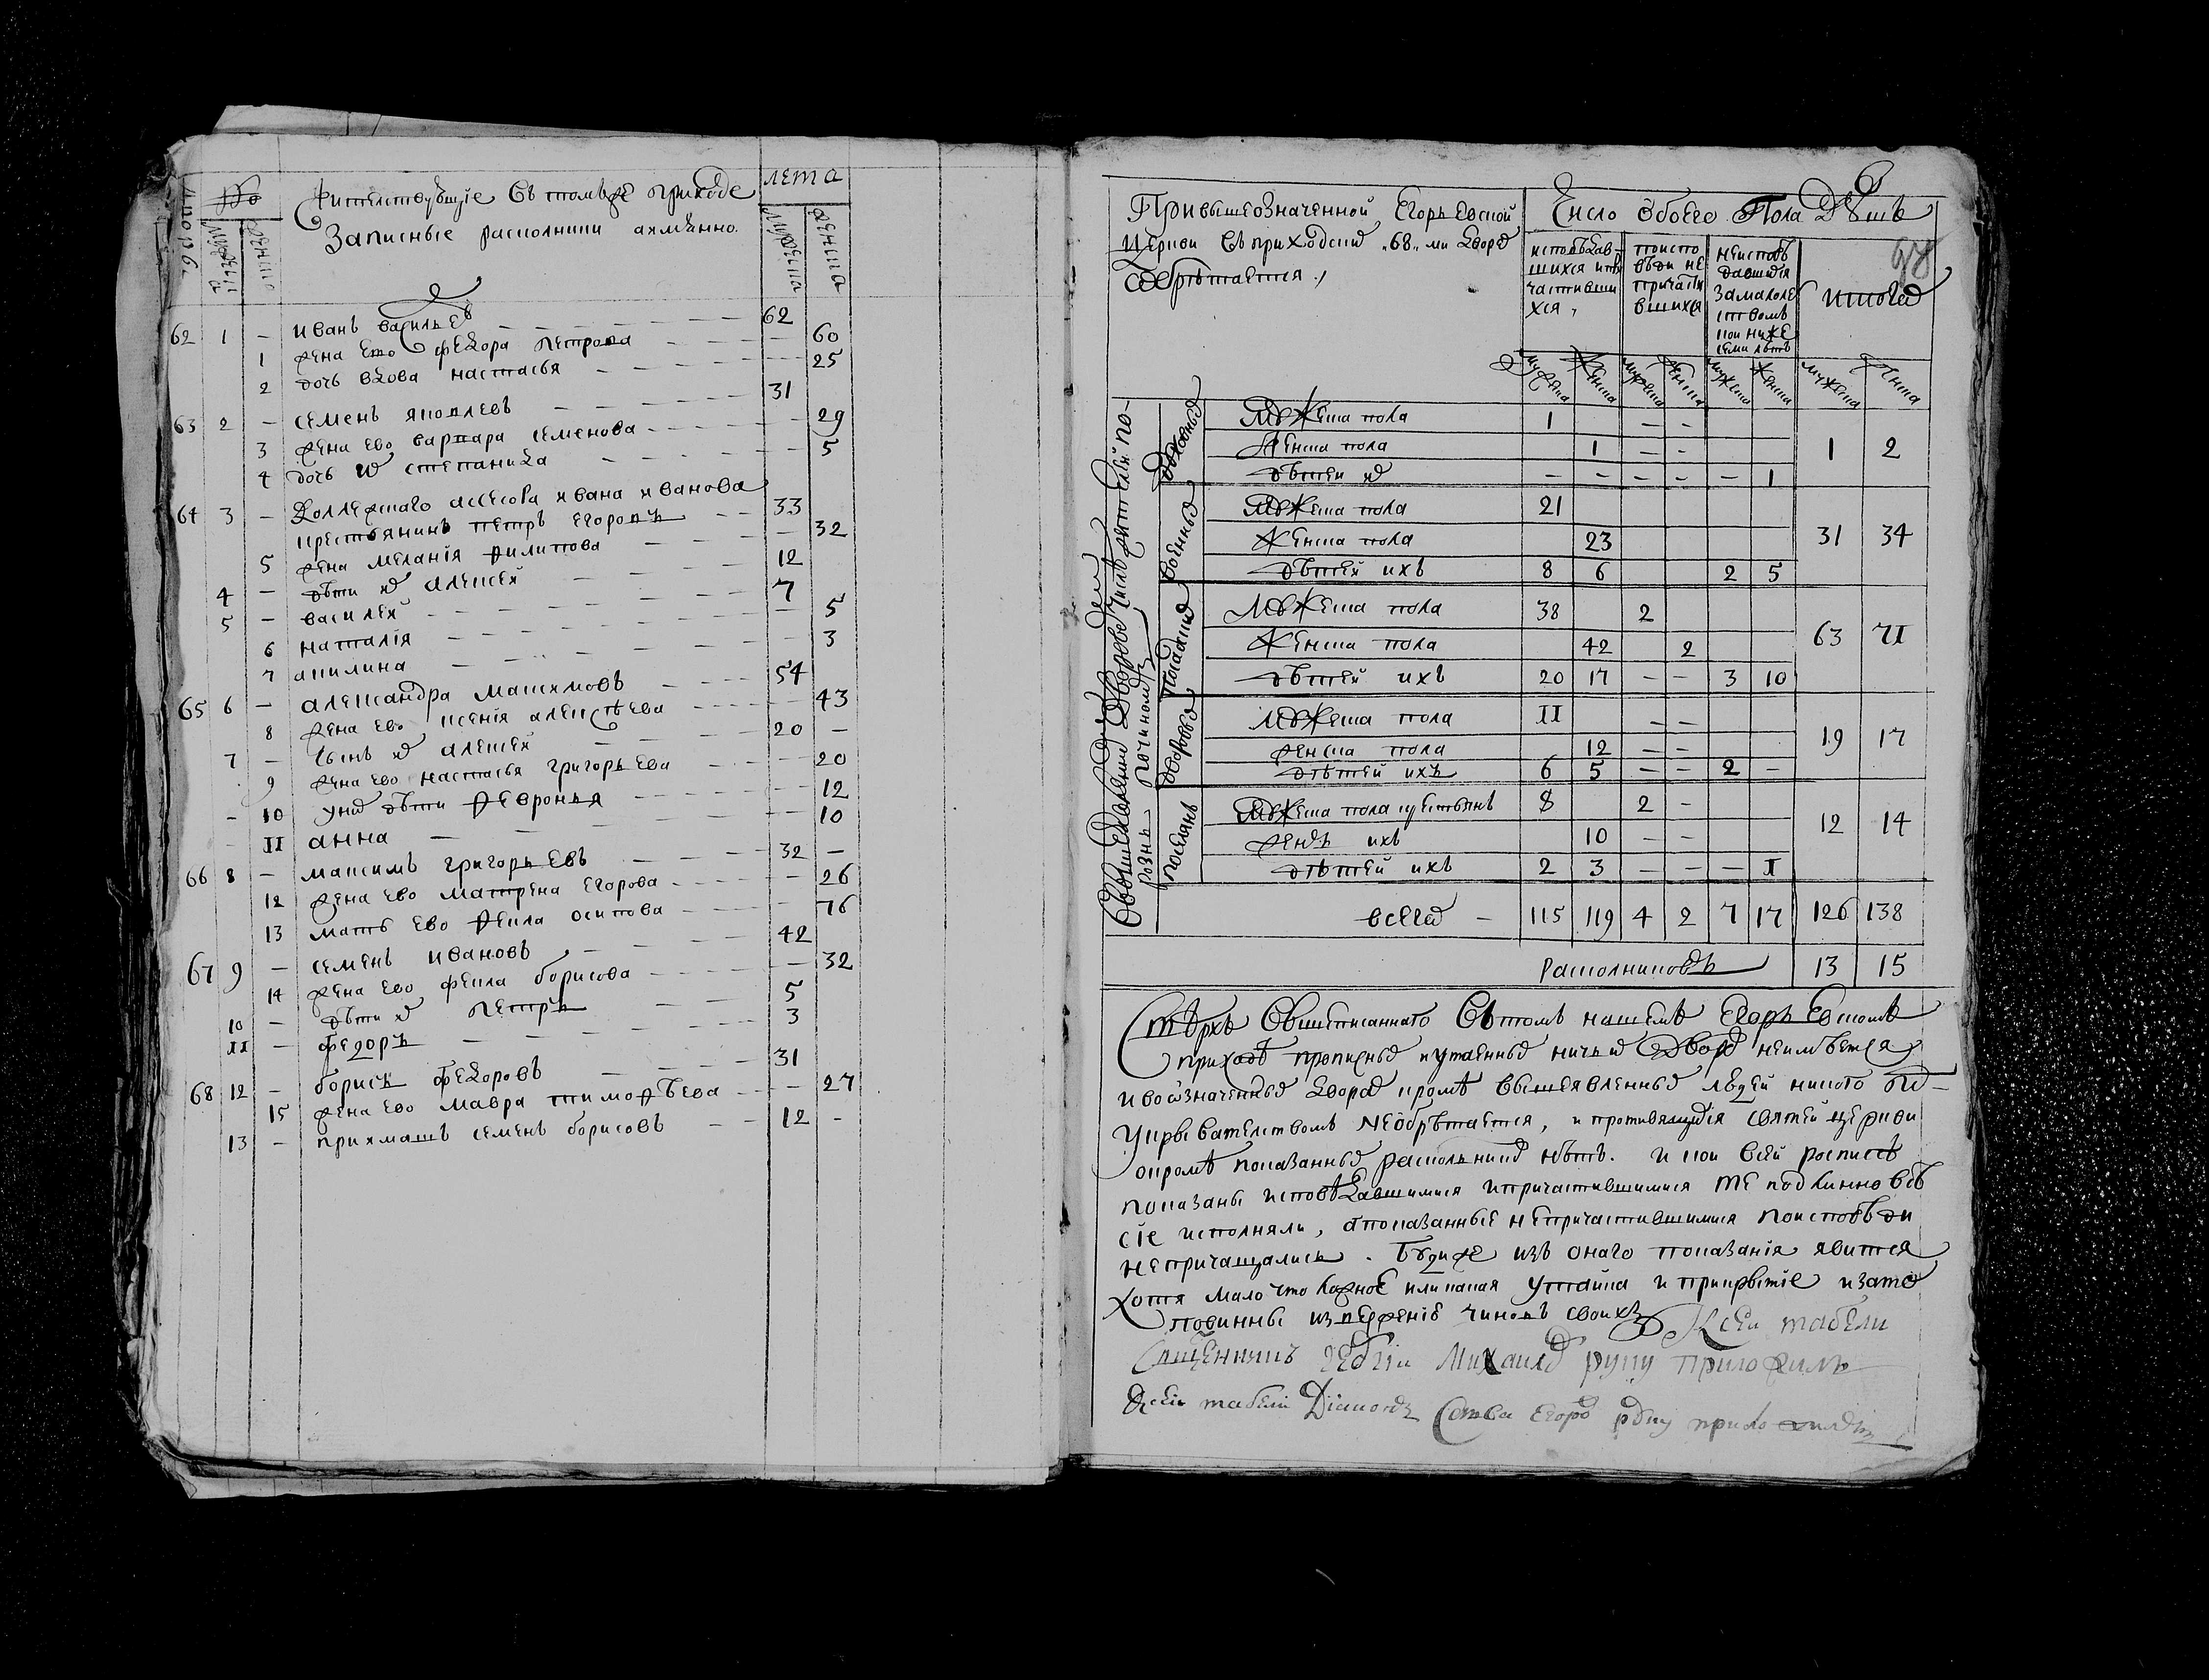 Жителствующие въ томъже приходе
Записные расколники а имянно
лета
дворо
мужеска
женска
мужеска
женска
62 1 – иванъ васильевъ 62
1 жена ево федора петрова – 60
2 дочь вдова настасья – 25
63 2 – семенъ яковлевъ 31
3 жена ево варвара семенова – 29
4 дочь их степанида – 5
64 3 – коллежскаго асесора ивана иванова
крестьянинъ петръ егоровъ 33
5 жена меланiя филипова – 32
4 – дѣти их алексей 12
5 – василей 7
6 наталiя – 5
7 акилина – 3
65 6 – александра максимовъ 54
8 жена ево ксенiя алексѣева – 43
7 – сынъ их алексей 20 –
9 жена ево настасья григорьева – 20
– 10 у них дѣти февронья – 12
– II анна – 10
66 8 – максимъ григорьевъ 32 –
12 жена ево матрена егорова – 26
13 мать ево фекла осипова – 76
67 9 – семенъ ивановъ 42
14 жена ево фекла борисова – 32
10 – дѣти их петръ 5
II – федоръ 3
68 12 – борисъ федоровъ 31
15 жена ево мавра тимофѣева – 27
13 – приимашъ семенъ борисовъ 12 –
6
98
При вышеозначенной Егорьевской
церкви въ приходских „68„ ми дворех
обретается
Число обоего Пола Душъ
исповѣдав-
шихся и при
частивши
хся
по испо
вѣди не
причасти
вшихся
неисповѣ
давшихся
за малолѣ
тствомъ
кои ниже
семи лѣтъ
итого
мужеска женска мужеска женска мужеска женска мужеска женска
духовных
Мужеска пола 1 – –
Женска пола 1 – – 1 2
дѣтей их – – – – – 1
военных
Мужеска пола 21
Женска пола 23 31 34
дѣтей ихъ 8 6 2 5
посадских
Мужеска пола 38 2
Женска пола 42 2 63 71
дѣтей ихъ 20 17 – – 3 10
дворовых
Мужеска пола II – –
женска пола 12 – – 19 17
дѣтей ихъ 6 5 – – 2 –
поселянъ
Мужеска пола крестьянъ 8 2 –
женъ ихъ 10 – – 12 14
дѣтей ихъ 2 3 – – – I
всего – 115 119 4 2 7 17 126 138
Расколниковъ 13 15
Сверхъ вышеписаннаго въ томъ нашемъ Егорьевскомъ
приходѣ прописных и утаенных ничьих дворов неимѣется
и во означенных дворах кромѣ вышеявленных людей никого под-
укрывателствомъ необрѣтается, и противящихся святей церкви
окромѣ показанных расколников нѣтъ. и кои в сей росписѣ
показаны исповѣдавшимися и причастившимися те подлинно всѣ
сiе исполняли, а показанные непричастившимися по исповѣди
непричащались. Буде же изъ онаго показанiя явится
хотя мало что ложное или какая утайка и прикрытие и за то
повинны извержению чиновъ своихъ К сей табели
Священникъ Михаилъ руку приложилъ
К сей табели Дiаконъ Савва Егоровъ руку приложилъ